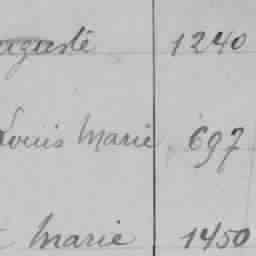 auguste 1240
Louis Marie 697
Marie 1450